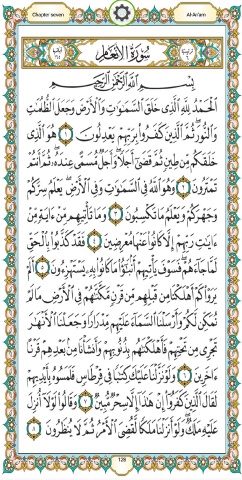 Chapter seven
Al-An'am
سورة الأنعام
بسم الله الرحمن الرحيم
الحمد لله الذي خلق السموت والأرض وجعل الظلمت
والنور ثم الذين كفروا بربهم يعدلون ١ هو الذي
خلقكم من طين ثم قضى أجلا وأجل مسمى عنده ثم أنتم
تمترون ٢ وهو الله في السموت وفي الأرض يعلم سركم
وجهركم ويعلم ما تكسبون ٣ وما تأتيهم من ءاية من
ءايت ربهم إلا كانوا عنها معرضين ٤ فقد كذبوا بالحق
لما جاءهم فسوف يأتيهم أنبؤا ما كانوا به يستهزءون ٥ ألم
يروا كم أهلكنا من قبلهم من قرن مكنهم في الأرض ما لم
نمكن لكم وأرسلنا السماء عليهم مدرارا وجعلنا الأنهر
تجري من تحتهم فأهلكنهم بذنوبهم وأنشأنا من بعدهم قرنا
ءاخرين ٦ ولو نزلنا عليك كتبا في قرطاس فلمسوه بأيديهم
لقال الذين كفروا إن هذا إلا سحر مبين ٧ وقالوا لولا أنزل
عليه ملك ولو أنزلنا ملكا لقضي الأمر ثم لا ينظرون ٨
128